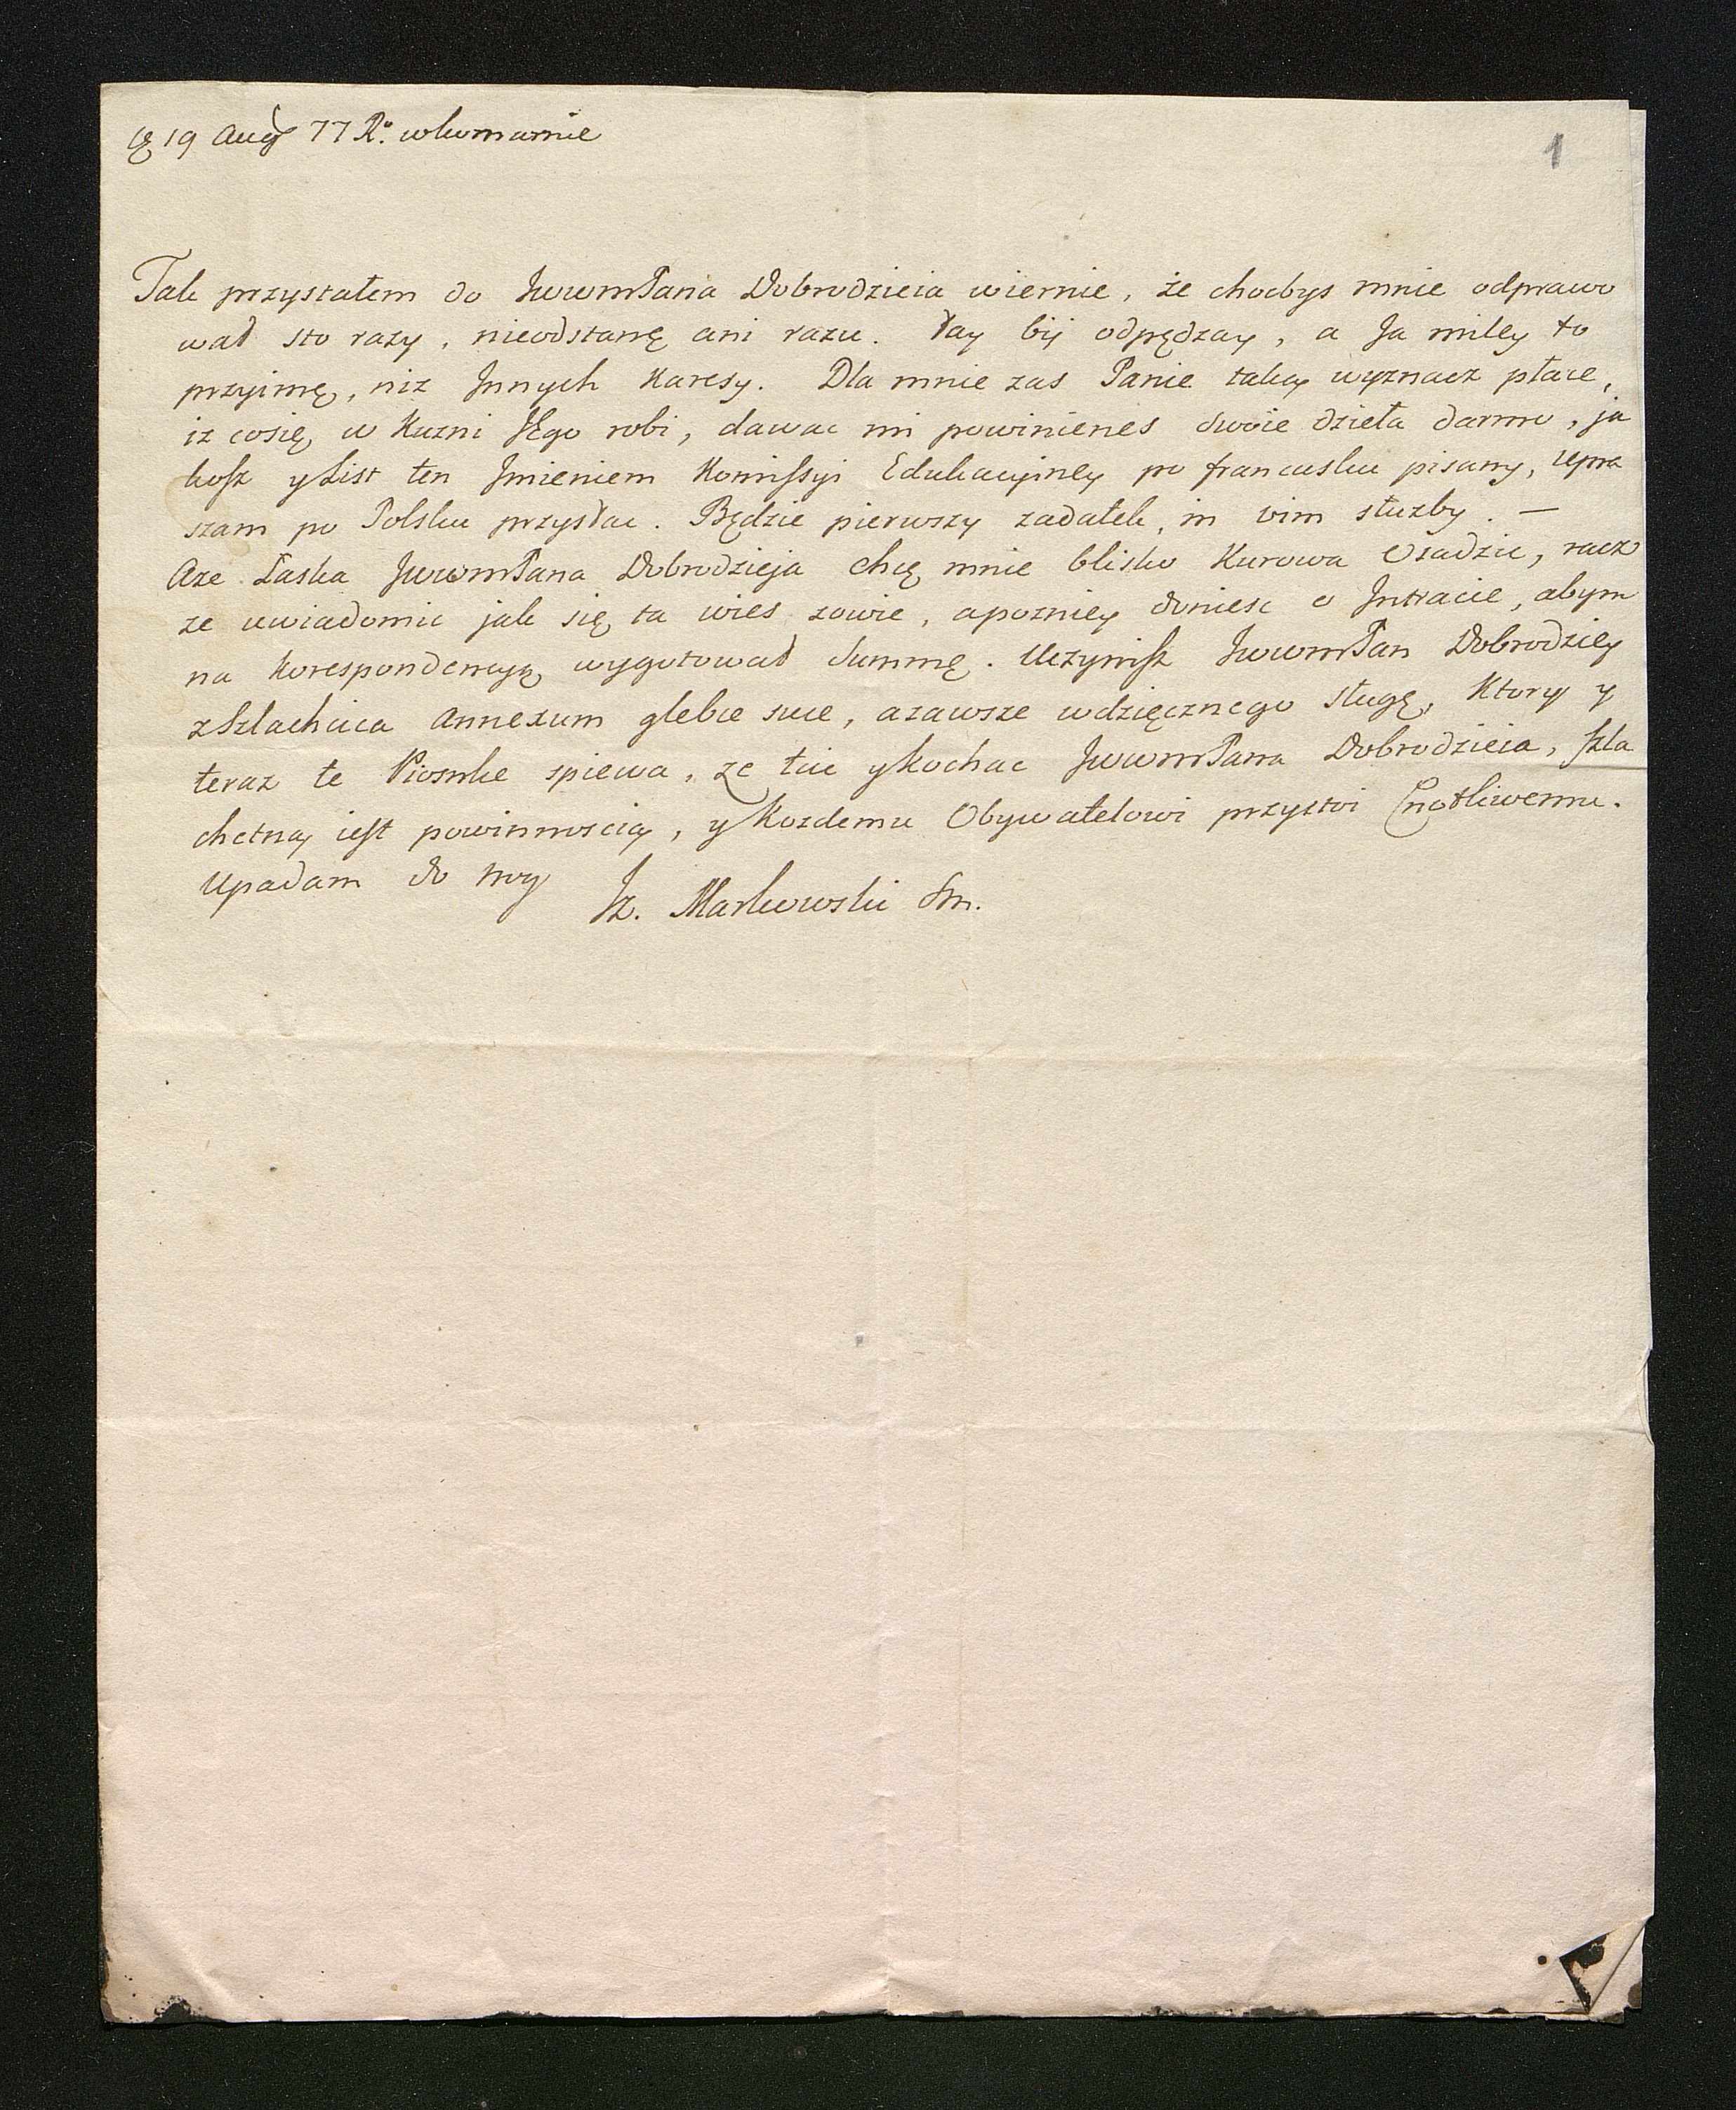 19 Aug 77 R: w komarnie
1
Tak przystałem do JwwmPana Dobrodzieia wiernie, że chocbys mnie odprawo
wał sto razy, nieodstanę ani razu. łay bij odpędzay, a Ja miley to
przyimę, niz Jnnych Karesy. Dla mnie zas Panie taką wyznacz płace,
iz cosię w Kuzni JEgo robi, dawac mi powinienes Swoie dzieła darmo, ja
kosz y List ten Jmieniem Komissyi Edukacyiney po francusku pisany, upra
szam po Polsku przysłac. Będzie pierwszy zadatek, in vim słuzby. —
Aze Łaska JwwmPana Dobrodzieja chcę mnie blisko Kurowa Osadzic, racz
ze uwiadomic jak się ta wies zowie, apozniey doniesc o Jntracie, abym
na Korespondencyą wygotował Summę. Uczynisz JwwmPan Dobrodziey
zSzlachcica Annexum glebie suae, azawsze wdzięcznego sługę, Ktory y
teraz te Piosnke spiewa, ze tuc yKochac JwwmPana Dobrodzieia, szla
chetną iest powinnoscią, y Kozdemu Obywatelowi przystoi Cnotliwemu.
Upadam do Nog
Jz. Markowski Sm.